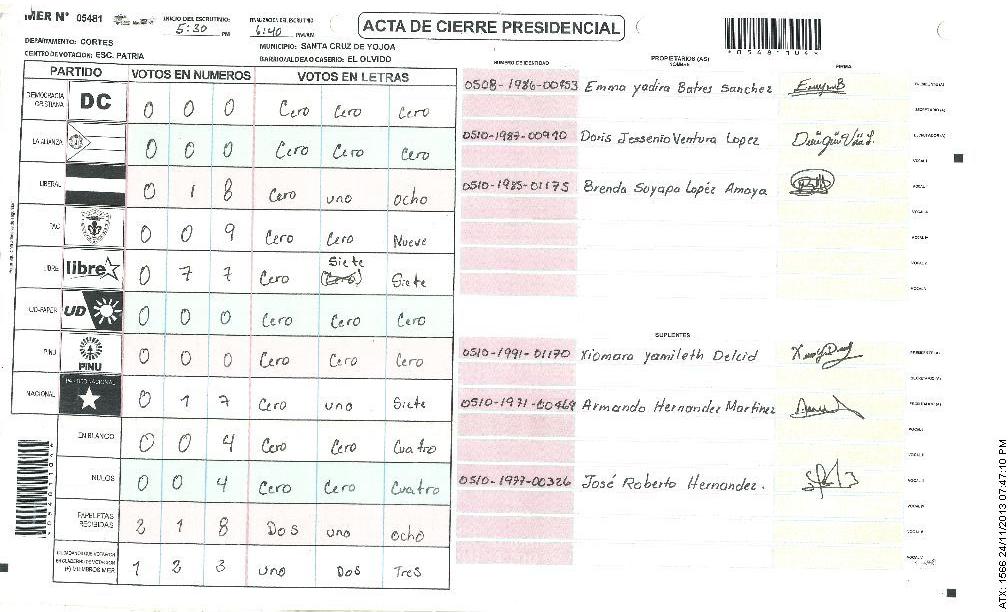 MER N° 05481 INICIO DEL ESCRUTINIO: 5:30 PM FINALIZACION DEL ESCRUTINIO 6:40 PM/AM
ACTA DE CIERRE PRESIDENCIAL
DEPARTAMENTO: CORTES MUNICIPIO: SANTA CRUZ DE YOJOA
CENTRO DE VOTACION: ESC. PATRIA BARRIO/ALDEA O CASERIO: EL OLVIDO
PARTIDO VOTOS EN NUMEROS VOTOS EN LETRAS
DEMOCRACIA CRISTIANA DC 0 0 0 Cero Cero Cero
LA ALIANZA 0 0 0 Cero Cero Cero
LIBERAL 0 1 8 Cero uno ocho
PAC 0 0 9 Cero Cero Nueve
LIBRE libre 0 7 7 Cero Siete Siete
UD-FAPER UD 0 0 0 Cero Cero Cero
PINU PINU 0 0 0 Cero Cero Cero
NACIONAL PARTIDO NACIONAL 0 1 7 Cero uno Siete
EN BLANCO 0 0 4 Cero Cero Cuatro
NULOS 0 0 4 Cero Cero Cuatro
PAPELETAS RECIBIDAS 2 1 8 Dos uno ocho
1 2 3 uno Dos Tres
NUMERO DE IDENTIDAD PROPIETARIOS (AS) NOMBRE FIRMA
0508-1986-00953 Emma yadira Batres Sanchez
0510-1987-00910 Doris Jessenio Ventura Lopez
0510-1985-01175 Brenda Suyapa Lopéz Amaya
SUPLENTES
0510-1991-01170 Xiomara yamileth Delcid
0510-1971-00469 Armando Hernandez Martinez
0510-1977-00326 José Roberto Hernandez.
ATX: 1566 24/11/2013 07:47:10 PM